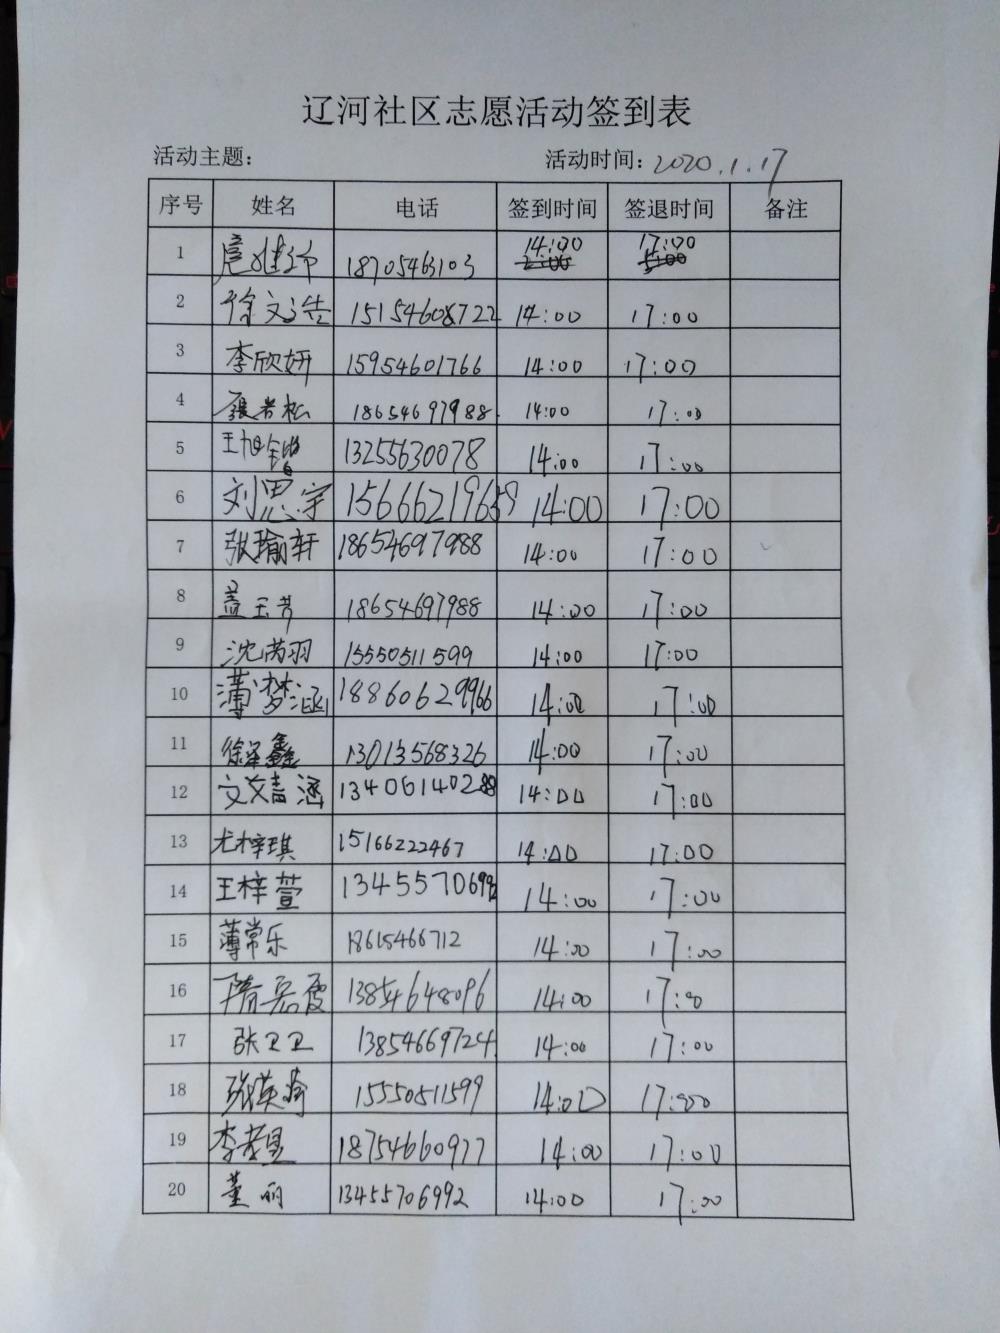 辽河社区志愿活动签到表
活动主题： 活动时间：2020.1.17
序号 姓名 电话 签到时间 签退时间 备注
1 18705463103 14:00 17:00
2 徐文浩 15154608722 14:00 17:00
3 李欣妍 15954601766 14:00 17:00
4 张若松 18654697988 14:00 17:00
5 王旭锴 13255630078 14:00 17:00
6 刘思宇 15666219659 14:00 17:00
7 张瑜轩 18654697988 14:00 17:00
8 盖玉芳 18654697988 14:00 17:00
9 沈芮羽 15550511599 14:00 17:00
10 薄梦涵 18860629966 14:00 17:00
11 徐泽鑫 13013568326 14:00 17:00
12 文婧涵 13406140288 14:00 17:00
13 尤梓琪 15166222467 14:00 17:00
14 王梓萱 13455706992 14:00 17:00
15 薄常乐 18615466712 14:00 17:00
16 隋宏霞 13854648096 14:00 17:00
17 张卫卫 13854669724 14:00 17:00
18 张英琦 15550511599 14:00 17:00
19 李孝星 18754660977 14:00 17:00
20 董丽 13455706992 14:00 17:00